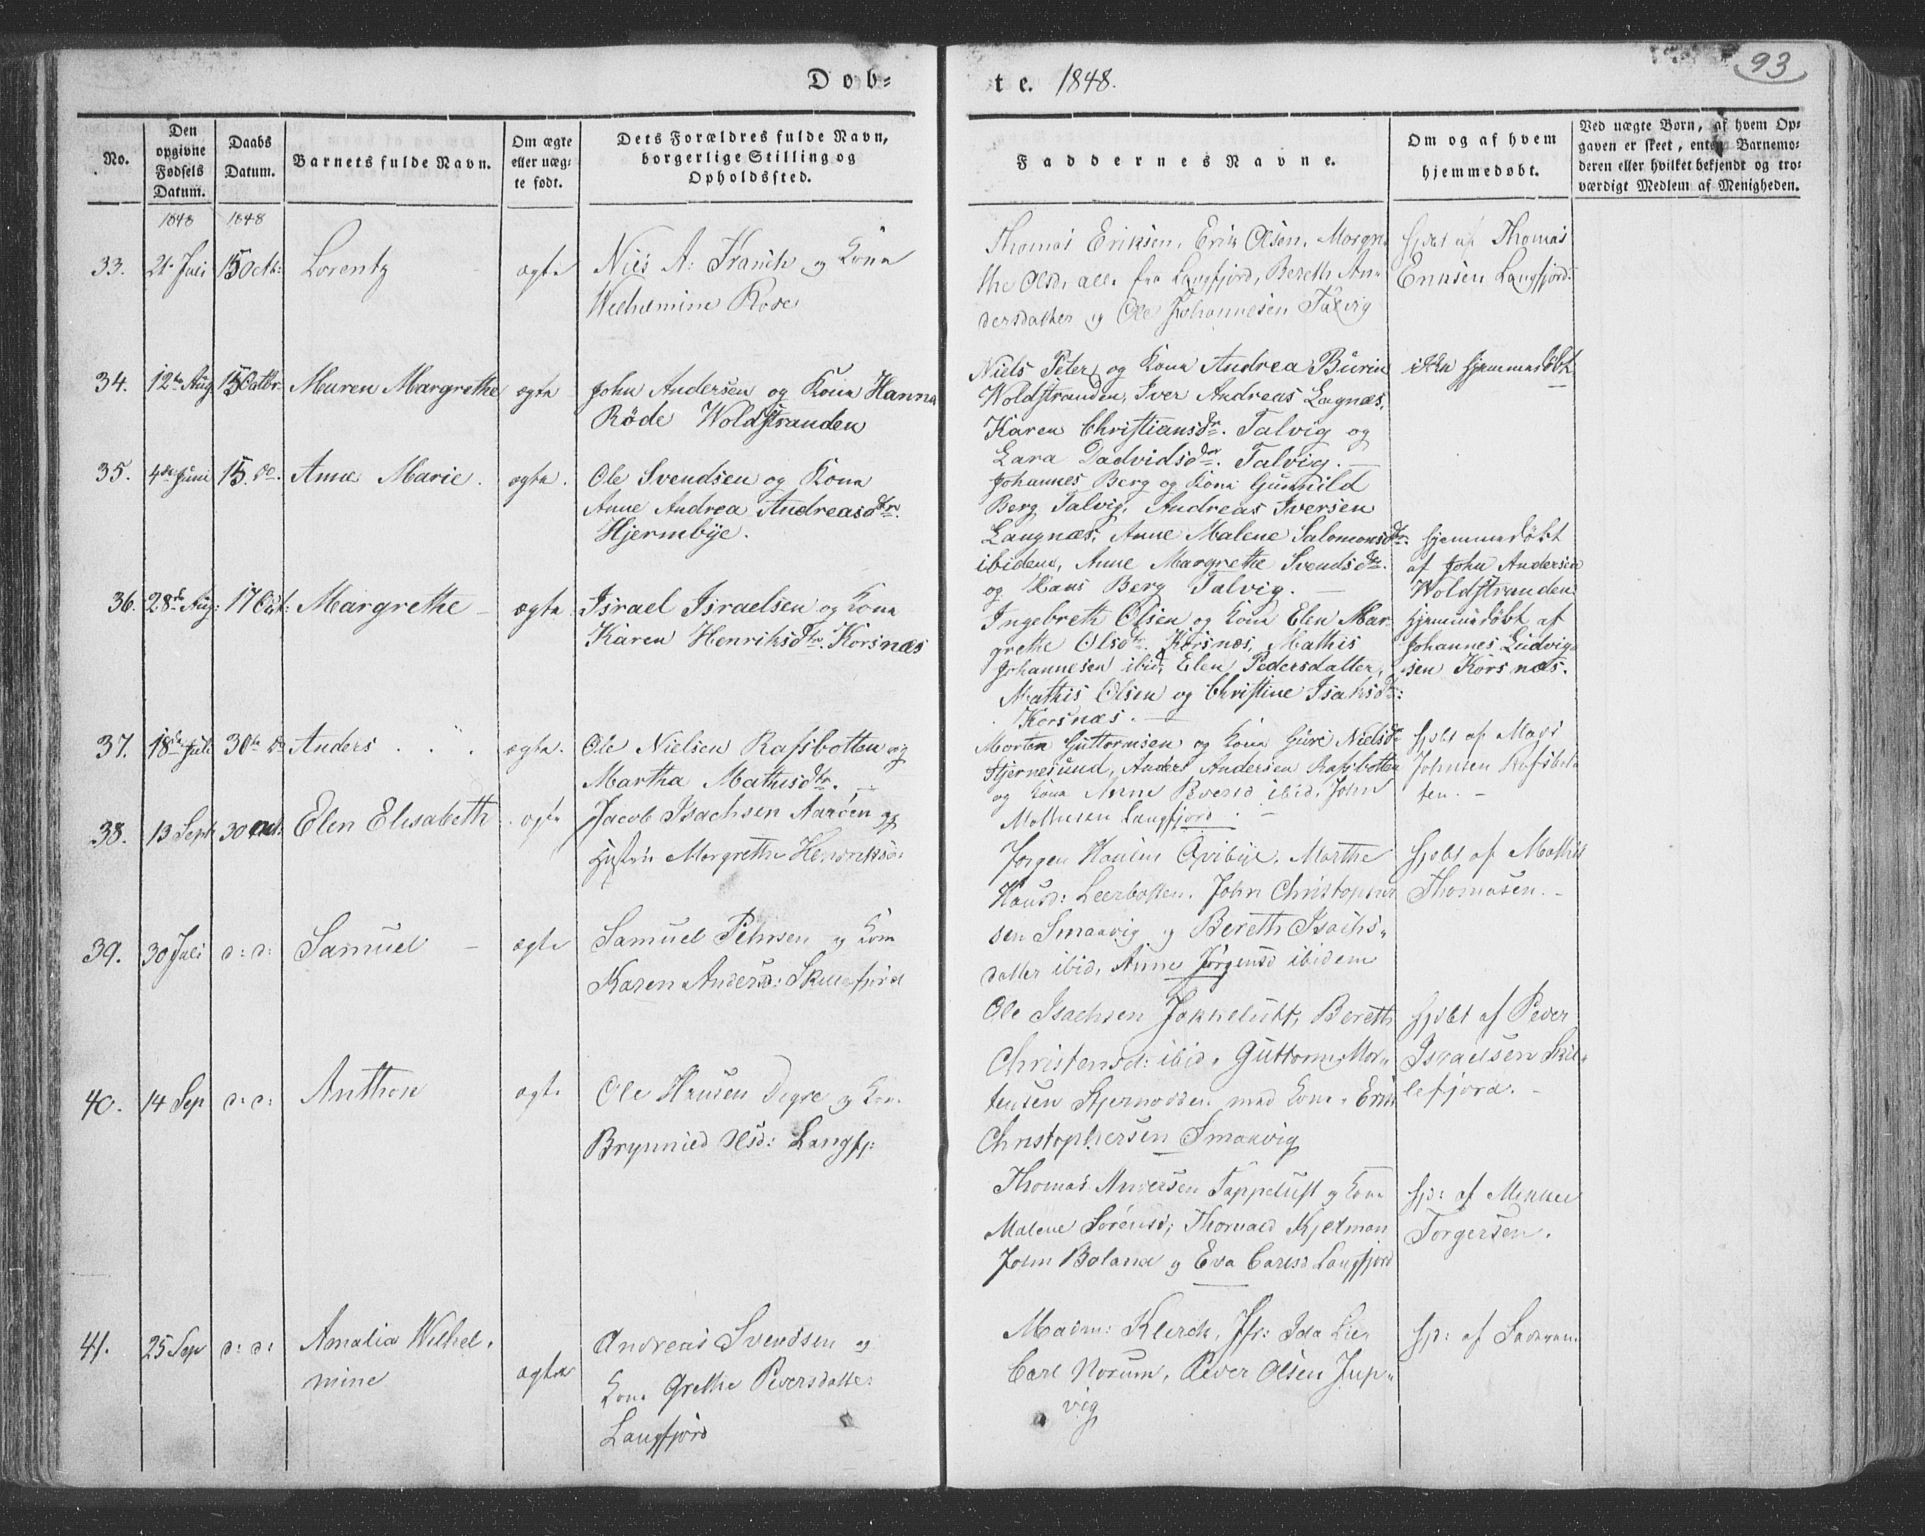 Døb-
te. 1848.
93
No.
Den opgivne Fødsels Datum.
Daabs Datum.
Barnets fulde Navn.
Om ægte eller uægte født.
Dets Forældres fulde Navn, borgerlige Stilling og Opholdssted.
Faddernes Navne.
Om og af hvem hjemmedøbt.
Ved uægte Børn, af hvem Opgaven er skeet, enten Barnemoderen eller hvilket bekjendt og troværdigt Medlem af Menigheden.
1848 1848
33. 21 Juli 15 Octb: Lorentz ægte
Niels A: Kona
Wilhelmine Rose
Thomas Eriksen, Erik Olsen, Margre
the Olsd, alle fra Langfjord, Bereth An-
dersdatter og Ole Johannesen Talvig
hjdbt af Thomas
Eriksen Langfjord.
34. 12te Aug 15 Octbr. Maren Margrethe ægte
John Andersen og Kona Hanna
Røde Woldstranden
Niels Peter og Kona Andrea Burin
Woldstranden, Iver Andreas Lagnæs,
Karen Christiansdr. Talvig og
Lara Dadvidsdtr. Talvig.
ikke hjemmedøbt
35. 4de Juni 15. do. Ane Marie. ægte.
Ole Svendsen og Kona
Anne Andrea Andreasdtr.
Hjermbye.
Johannes Berg og Kona Gunnild
Berg Talvig, Andreas Iversen
Langnæs, Anne Malene Salomonsdtr.
ibidem, Anne Margrethe Svendsdtr.
og Hans Berg Talvig.
hjemmedøbt
af John Andersen
Woldstranden
36. 28de Aug: 17 Oct: Margrethe ægte
Israel Israelsen og Kona
Karen Henriksdtr. Korsnæs
Ingebreth Olsen og Kona Elen Mar-
grethe Olsdtr. Korsnæs, Mathis
Johannesen ibid, Elen Pedersdatter,
Mathis Olsen og Christine Isaksdtr:
Korsnæs.
hjemmedøbt af
Johannes Ludvig-
sen Korsnæs.
37. 18de Juli 30te do Anders ægte.
Ole Nielsen Rafsbotten og
Martha Mathisdtr.
Morten Guttormsen og Kona Gure Nielsdr
Stjernesund, Anders Andersen Rafsbotten
og Kona Anne ibid, John
Mathisen Langfjord.
hjdbt af Mags
Johnsen Rafsbot-
ten.
38. 13 Sept 30 Oct: Elen Elisabeth ægte
Jacob Isachsen Aarøen og
Hustru Margrethe Hendriksd:
Jørgen Hansen Qvibye, Marthe
Hansd: Leerbotten, John Christopher
sen Smaavig og Bereth Isachs-
datter ibid, Anne Jørgensd ibidem
hjdbt af Mathis
Thomasen.
39. 30 Juli d: d: Samuel ægte
Samuel Pehrsen og Kona
Karen Andersd: Skillefjord
Ole Isachsen Jokkeluft, Bereth
Christensd: ibid, Guttorm Mor-
tensen Stjernodden med Kona, Erik
Christophersen Smaavig
hjdbt af Peder
Israelsen Skil-
lefjord.
40. 14 Sep d: d: Anthon ægte
Ole Hansen Degre og Kona
Brynnild Olsd: Langfj:
Thomas Andersen Tappeluft og Kona
Malene Sørensd, Thorvald Kjelman
John Boland og Eva Carlsd Langfjord
hjd: af Mikkel
Torgersen.
41. 25 Sep d: d: Amalia Wilhel-
mine ægte
Andreas Svendsen og
Kona Grethe Pedersdatter
Langfjord
Madm: Klerck, Jfr: Ida
Carl Norum, Peder Olsen Jup-
vig
hjd: af